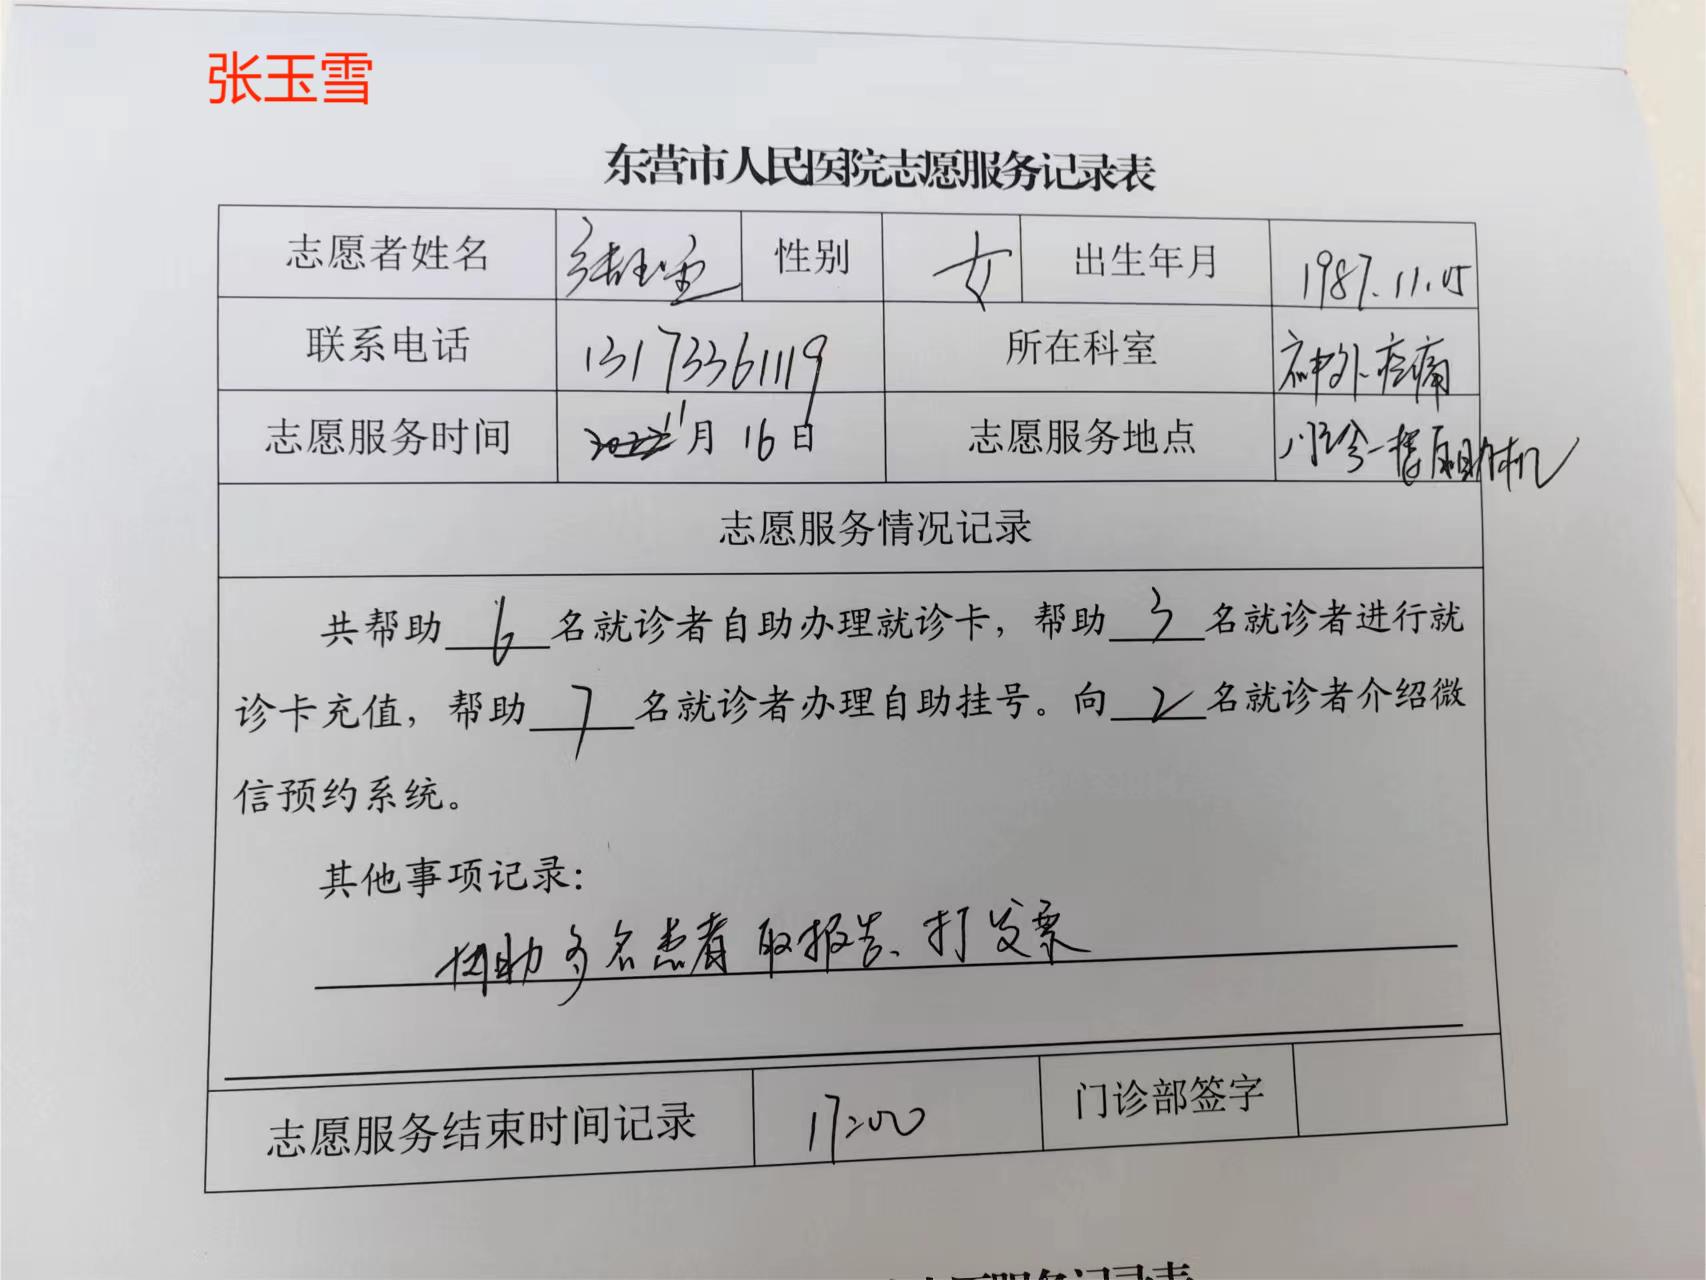 张玉雪
东营市人民医院志愿服务记录表
志愿者姓名 张玉雪 性别 女 出生年月 1987.11.05
联系电话 13173361119 所在科室 神外疼痛
志愿服务时间 11月16日 志愿服务地点 门诊一楼 自助机
志愿服务情况记录
共帮助 6 名就诊者自助办理就诊卡，帮助 3 名就诊者进行就
诊卡充值，帮助 7 名就诊者办理自助挂号。向 2 名就诊者介绍微
信预约系统。
其他事项记录：
协助多名患者取报告、打发票
志愿服务结束时间记录 17:00 门诊部签字
志愿服务记录表